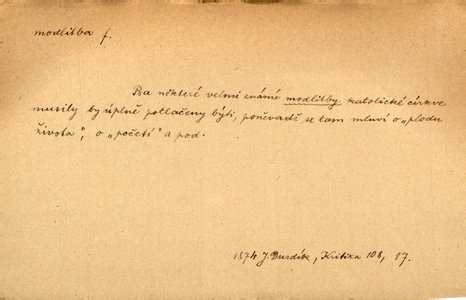 modlitba f.
Ba některé velmi známé modlitby katolické církve
musily by úplně potlačeny býti, poněvadž se tam mluví o „plodu
života“, o „početí“ a pod.
1874 J. Durdík, Kritika 108, 17.